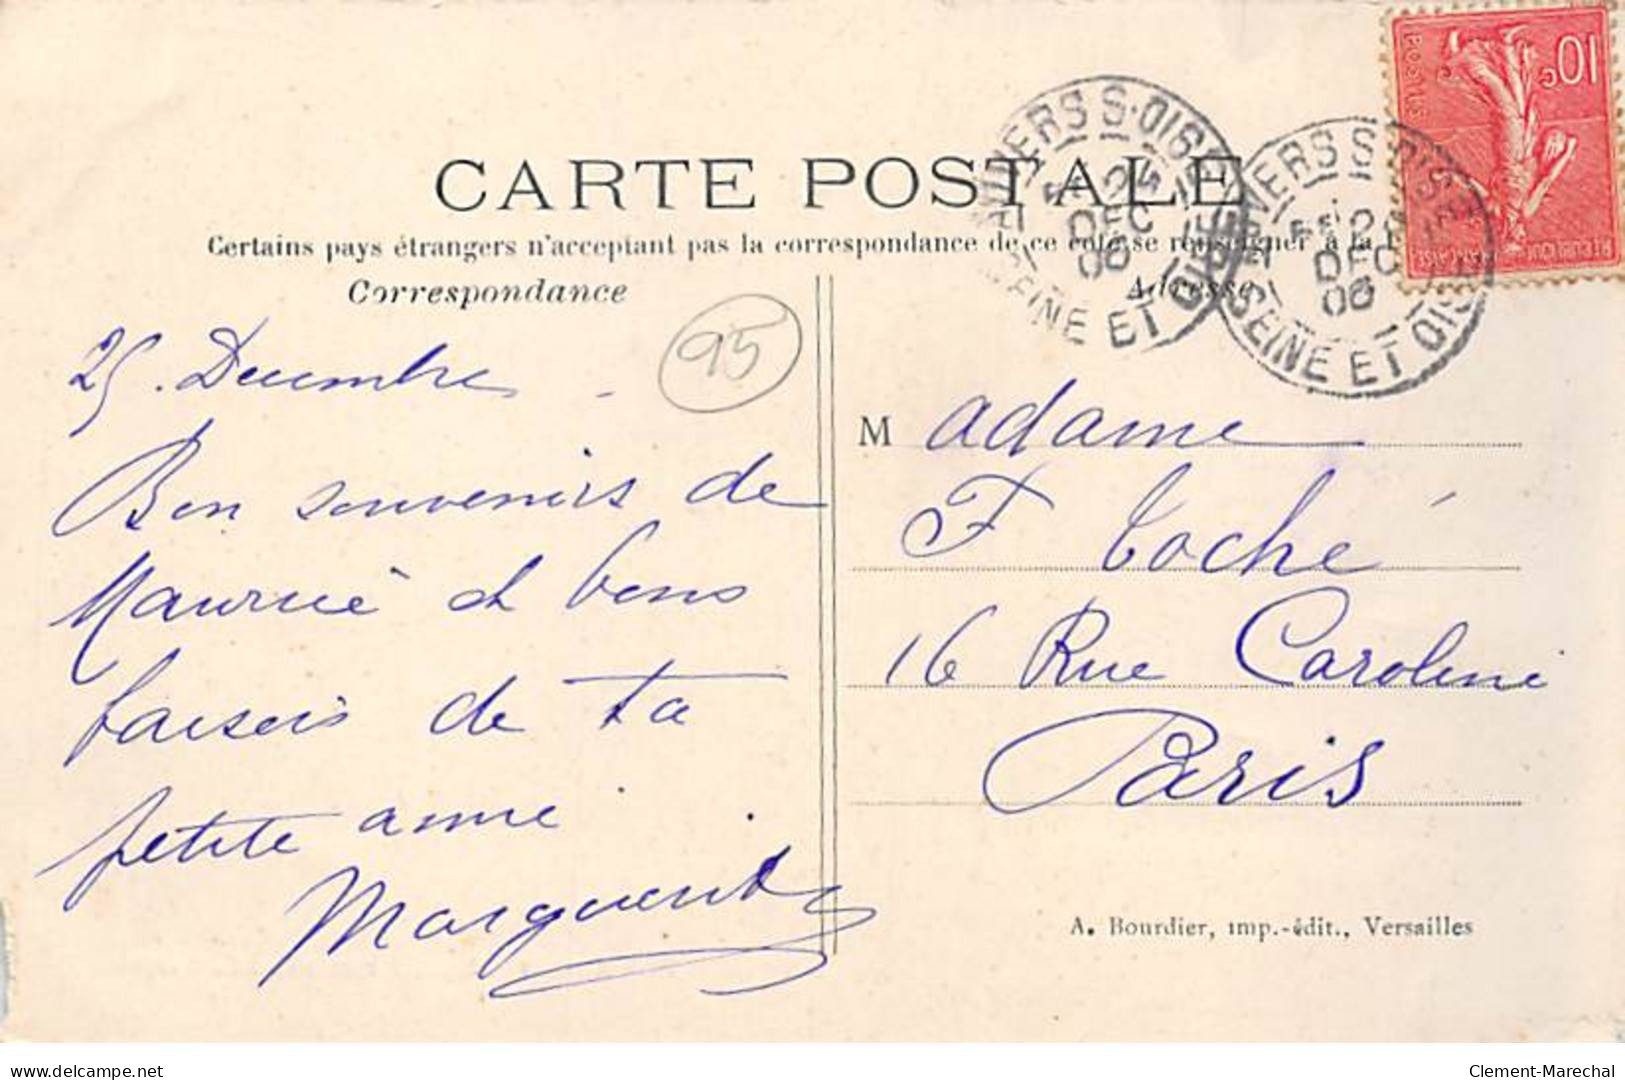 CARTE POSTALE
Certains pays étrangers n'acceptent pas la correspondance de ce côté se renseigner à la
Correspondance
Adresse
25. Decembre
95
Bon souvenirs de
Maurice et bons
baisers de ta
petite amie
Marguerite
Madame
F Toché
16 Rue Caroline
Paris
A. Bourdier, imp.-édit., Versailles
10c
POSTES
REPUBLIQUE FRANÇAISE
VIERS S. OISE
25
DEC
06
SEINE ET OISE
VIERS S. OISE
DEC
06
SEINE ET OISE
delcampe.net
Clement-Marechal